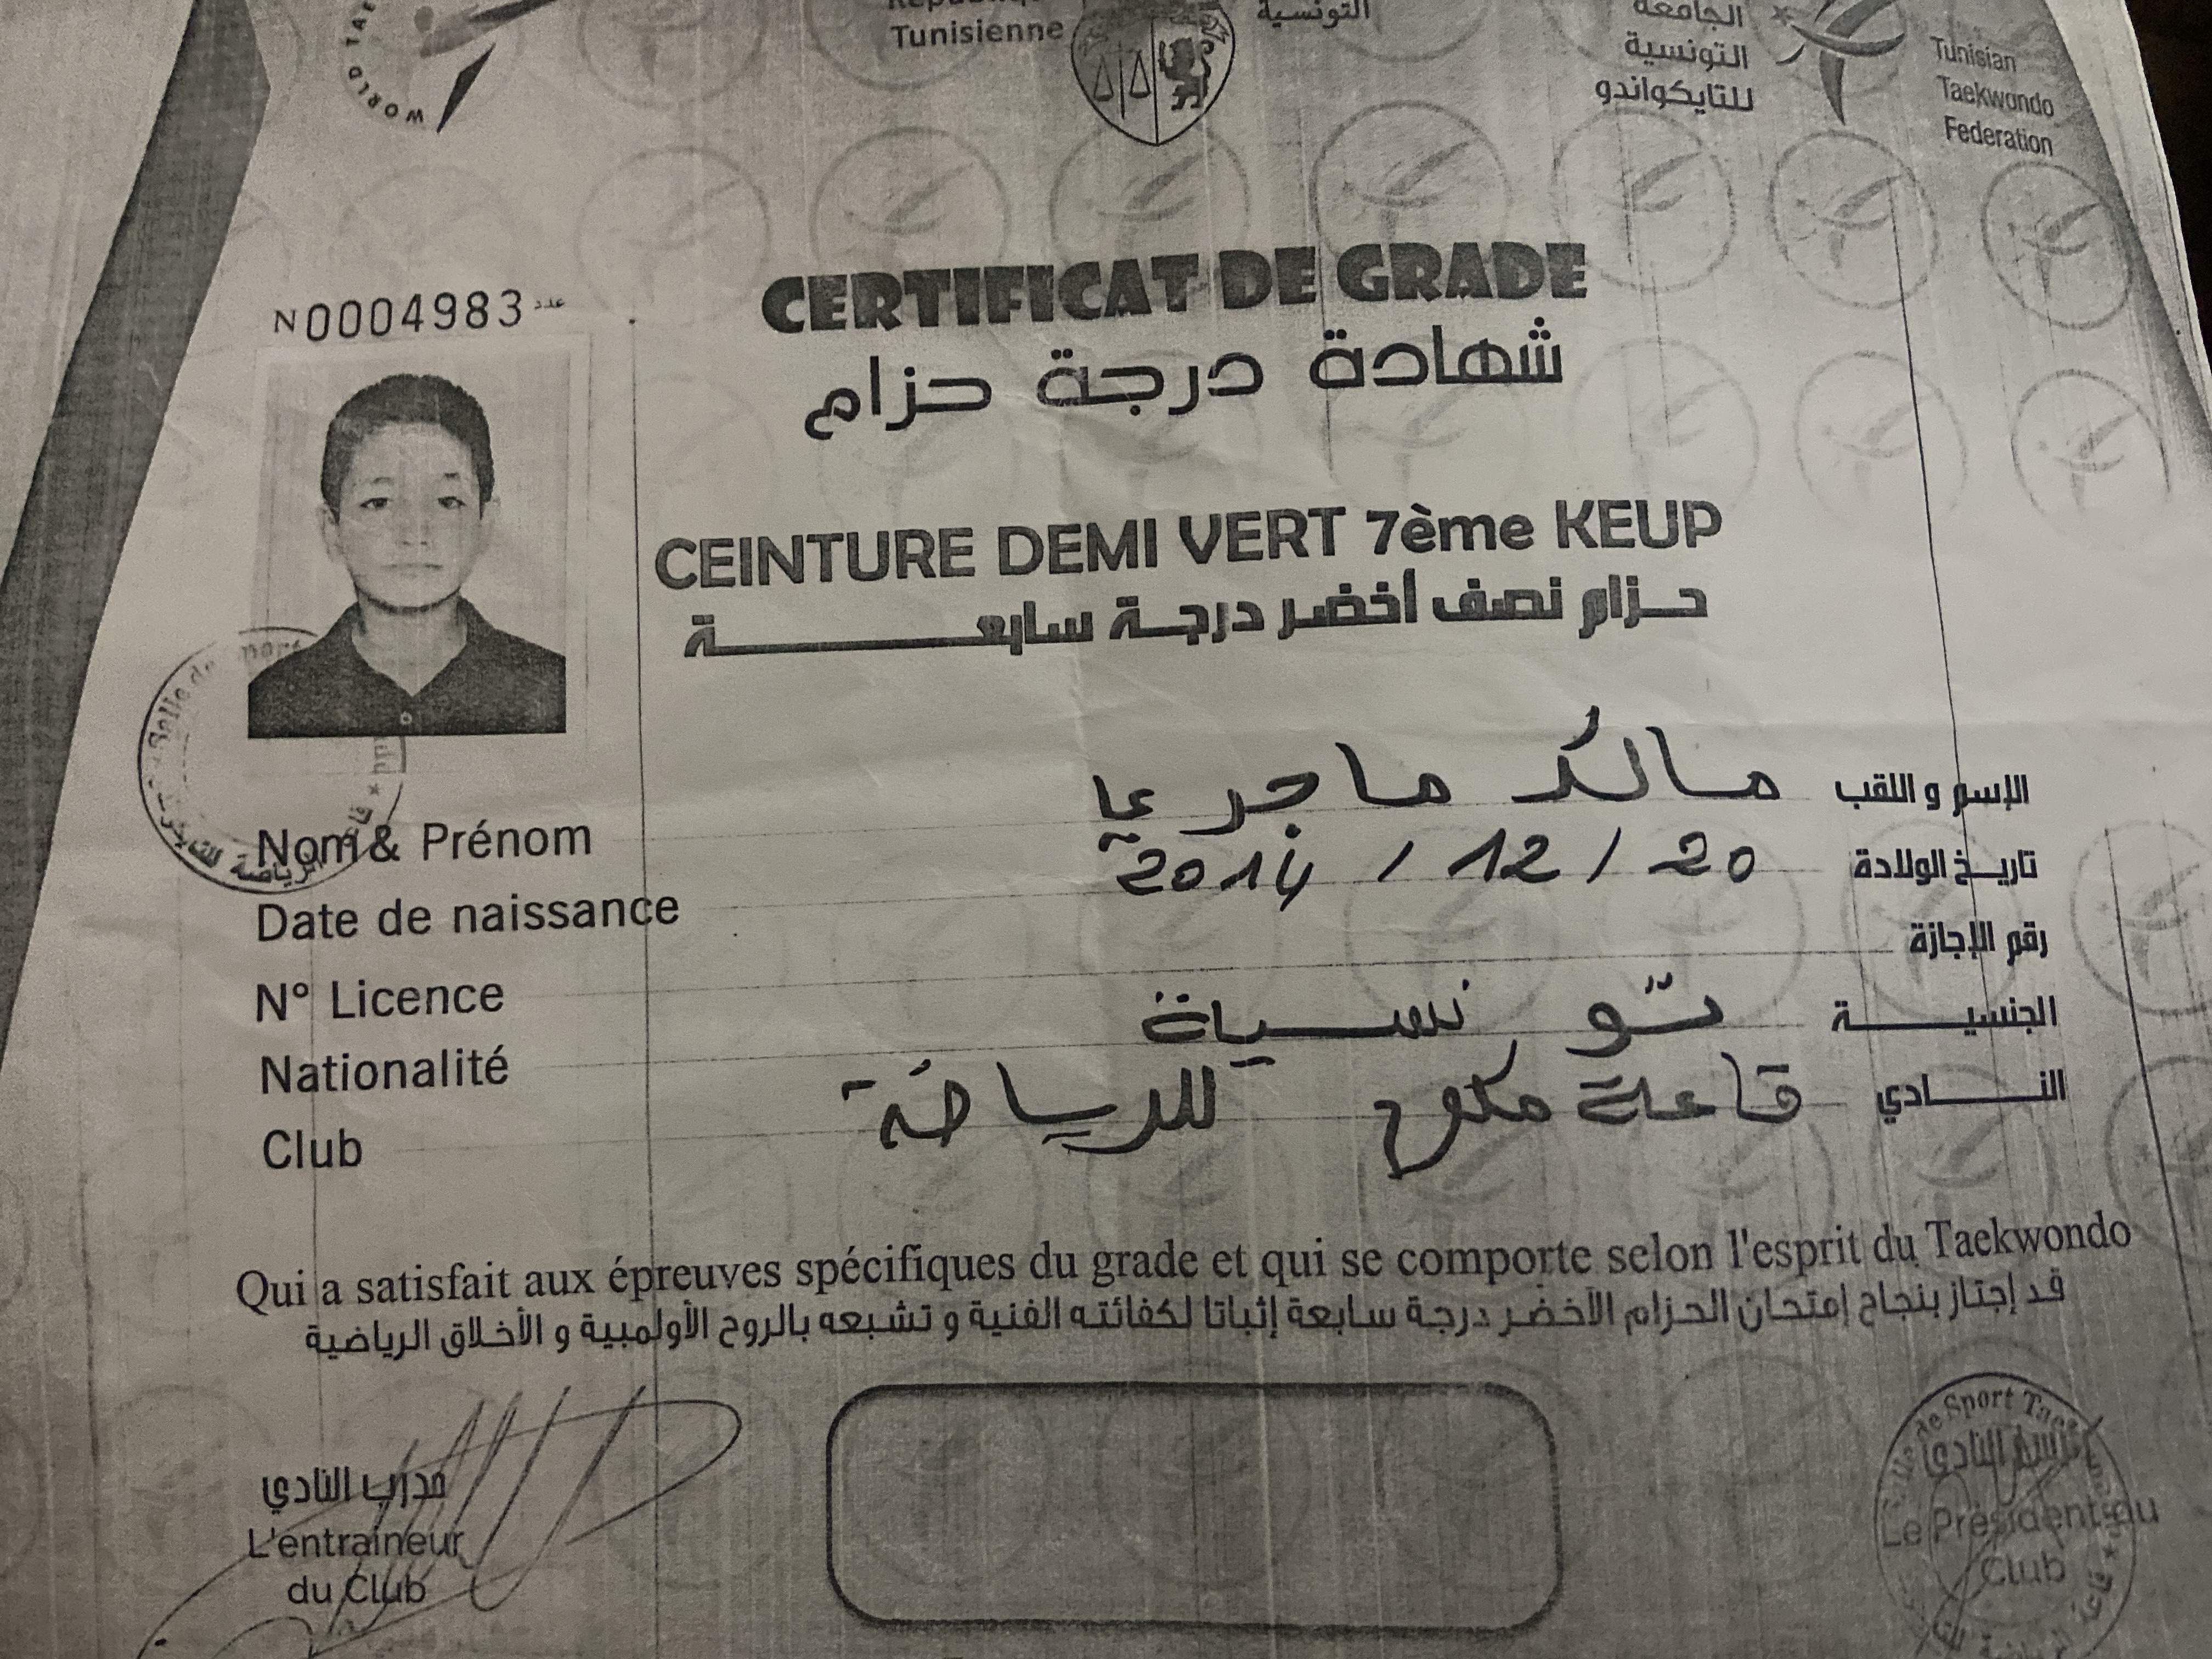 WORLD TAE
République
Tunisienne
التونسية
الجامعة
التونسية
للتايكواندو
Tunisian
Taekwondo
Federation
N0004983 عدد
CERTIFICAT DE GRADE
شهادة درجة حزام
CEINTURE DEMI VERT 7ème KEUP
حزام نصف أخضر درجة سابعة
Nom & Prénom مالك ماجري الإسم و اللقب
Date de naissance 2014 / 12 / 20 تاريخ الولادة
N° Licence رقم الإجازة
Nationalité تونسية الجنسية
Club قاعة للرياضة النادي
Qui a satisfait aux épreuves spécifiques du grade et qui se comporte selon l'esprit du Taekwondo
قد إجتاز بنجاح إمتحان الحزام الأخضر درجة سابعة إثباتا لكفائته الفنية و تشبعه بالروح الأولمبية و الأخلاق الرياضية
مدرب النادي
L'entraineur
du Club
النادي
Le Président du
Club
de Sport Tae